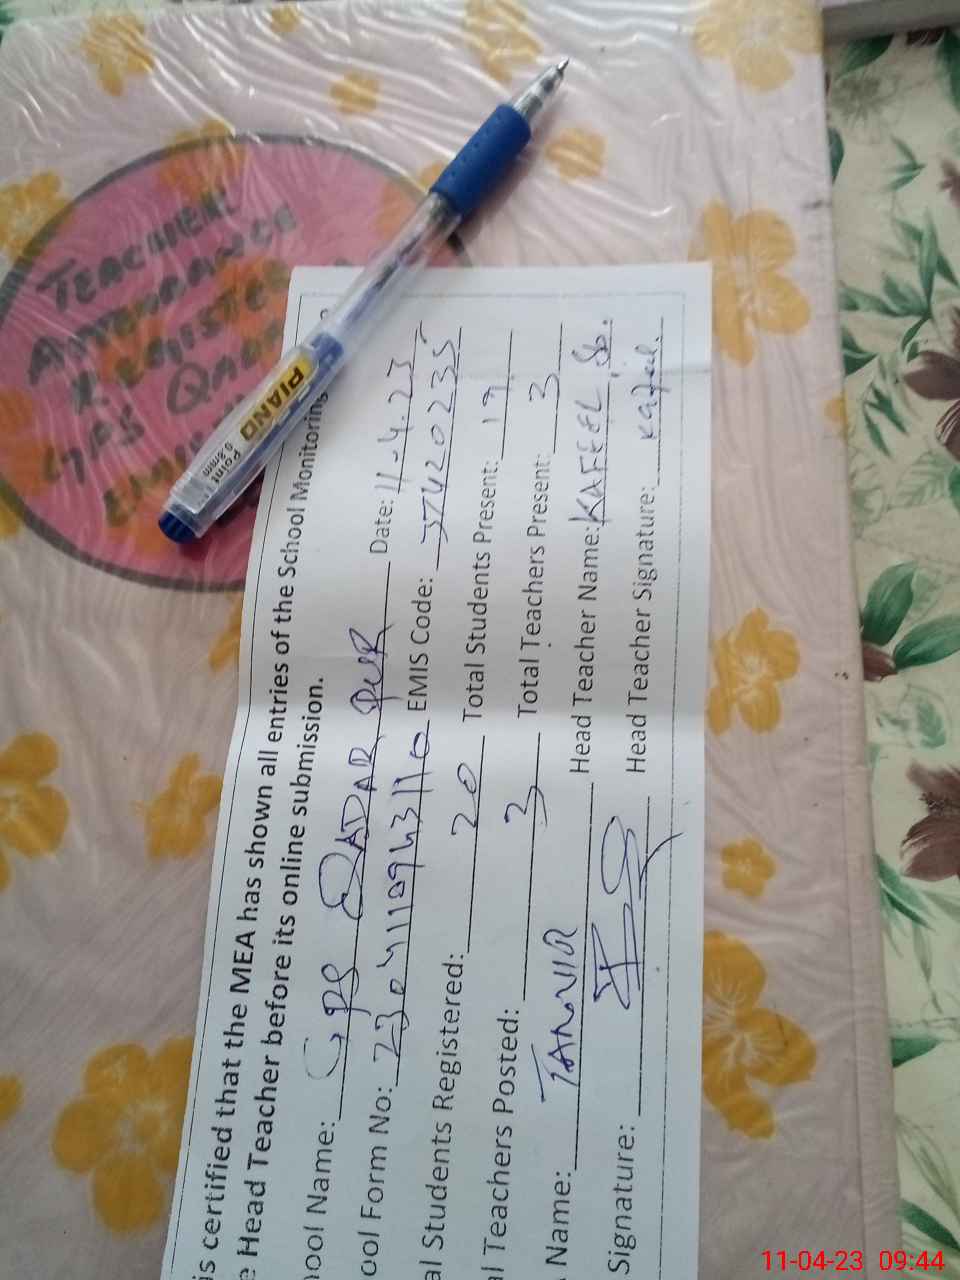 TEACHER
ATTENDANCE
REGISTER
GPS QADAR
PIANO
Point
0.8mm
is certified that the MEA has shown all entries of the School Monitoring
e Head Teacher before its online submission.
hool Name: GPS QADAR PUR Date: 11-4-23
ool Form No: EMIS Code: 37420235
al Students Registered: 20 Total Students Present: 17
al Teachers Posted: 3 Total Teachers Present: 3
Name: TANVIR Head Teacher Name: KAFEEL
Signature: Head Teacher Signature: Kafeel.
11-04-23 09:44